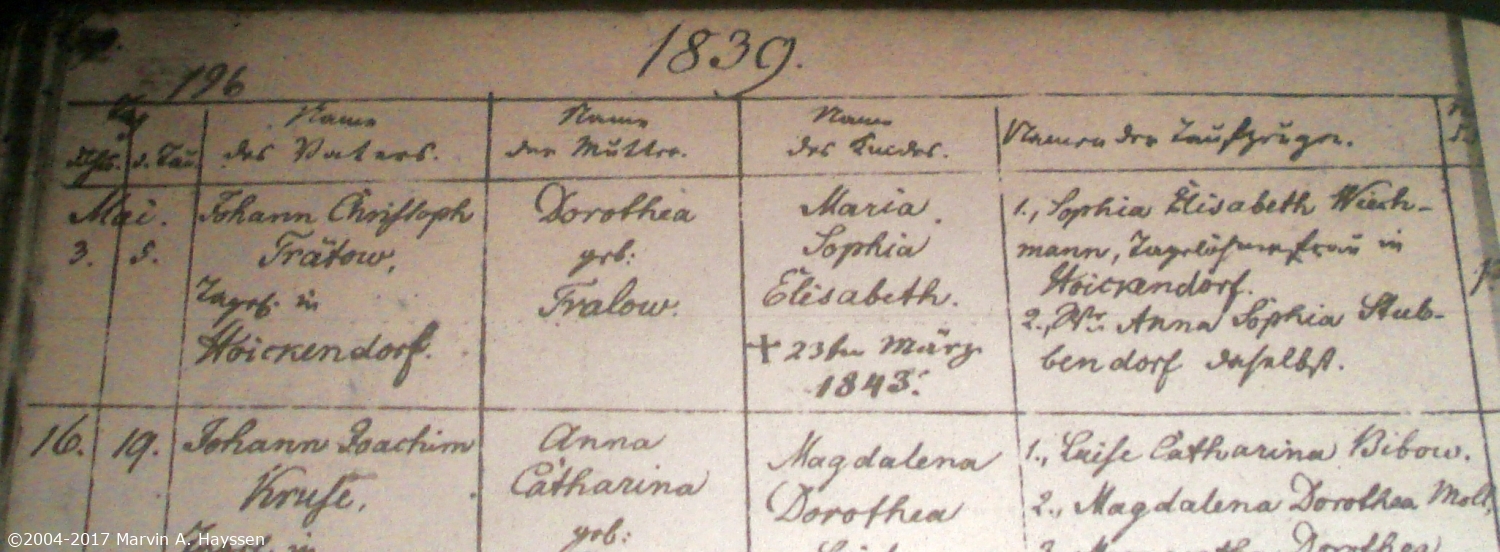 1839.
196
Tag
d. Gbs. d. Tau.
Name
des Vaters.
Name
der Mutter.
Name
des Kindes.
Namen der Taufzeugen.
Mai.
3. 5.
Johann Christoph
Trätow,
Tagel. in
Hoickendorf.
Dorothea
geb:
Tralow.
Maria
Sophia
Elisabeth.
+ 23ten März
1843.
1., Sophia Elisabeth Wiech-
mann, Tagelöhnerfrau in
Hoickendorf.
2., Anna Sophia Stub-
bendorf daselbst.
16. 19.
Johann Joachim
Kruse,
Tagel. in
Anna
Catharina
geb:
Magdalena
Dorothea
1., Luise Catharina Bibow.
2., Magdalena Dorothea Moll,
3. Dorothea
©2004-2017 Marvin A. Hayssen